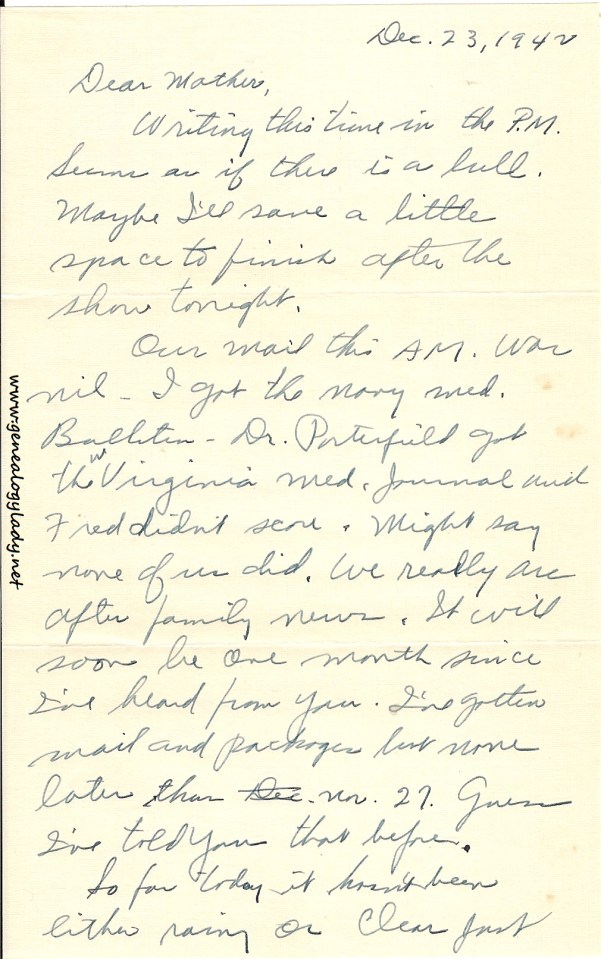 Dec. 23, 1942
Dear Mother,
Writing this time in the P.M.
Seems as if there is a lull.
Maybe I'll save a little
space to finish after the
show tonight.
Our mail this A.M. was
nil - I got the navy med.
Bulletin - Dr. Porterfield got
the W Virginia med. Journal and
Fred didn't score. Might say
none of us did. We really are
after family news. It will
soon be one month since
I've heard from you. I've gotten
mail and packages but none
later than Dec. Nov. 27. Guess
I've told you that before.
So far today it hasn't been
either rainy or clear just
www.genealogylady.net